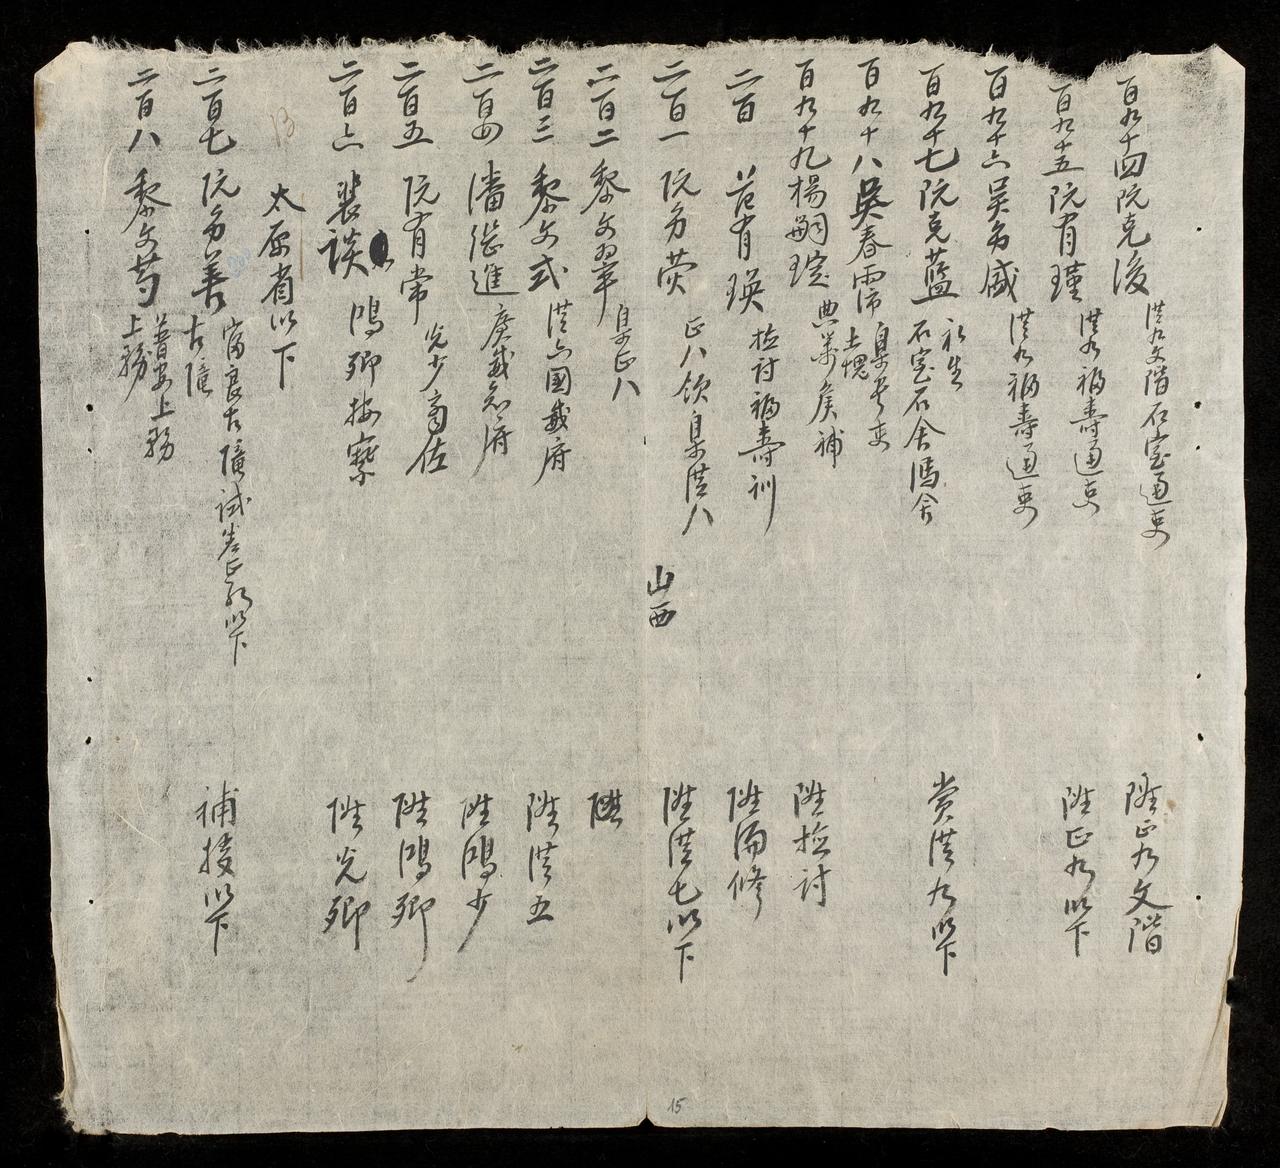 百九十四阮克浚 洪九文階石室通吏 陞正九文階
百九十五阮有瑾 洪九福壽通吏 陞正九以下
百九十六吳多盛 洪九福壽通吏
百九十七阮克藍 永生
石室石舍馮舍 賞洪九以下
百九十八吳春霈 臬
土塊
百九十九楊嗣琔 典 侯補 陞檢討
二百 范有瑛 檢討福壽訓 陞編修
二百一 阮多荧 正八領臬洪八 陞洪七以下
山西
二百二 黎文翠 臬正八 陞
二百三 黎文式 洪六國威府 陞洪五
二百四 潘從進 廣威知府 陞鴻少
二百五 阮有常 光少商佐 陞鴻卿
二百六 裴談 鴻卿按察 陞光卿
太原省以下
二百七 阮多善 富良古隴試差正 以下
古隴 補授以下
二百八 黎文芍 普安上務
上務
13
15